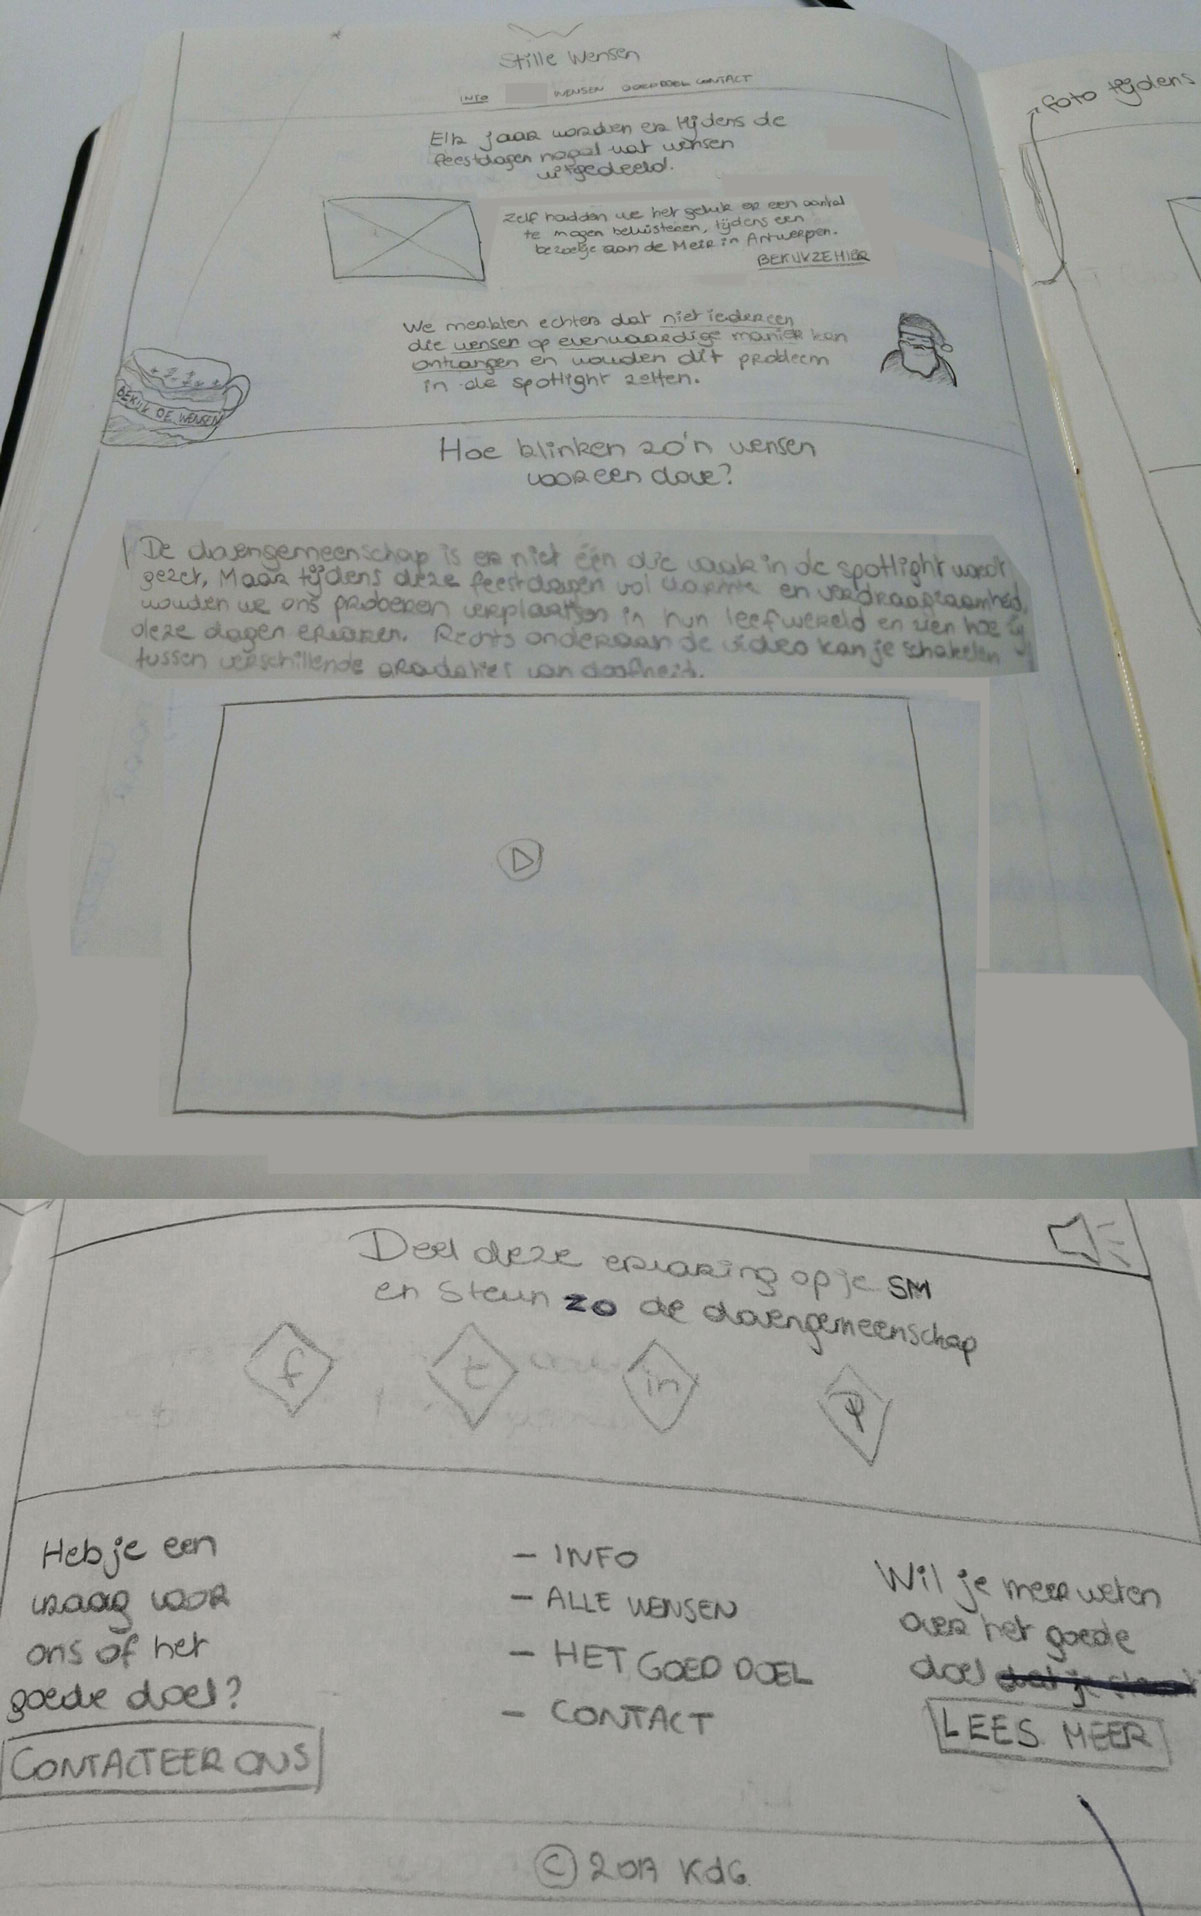 Stille Wensen
INFO WENSEN GOEDE DOEL CONTACT
foto tijdens
Elk jaar worden er tijdens de
feestdagen nogal wat wensen
uitgedeeld.
Zelf hadden we het geluk er een aantal
te mogen beluisteren, tijdens een
bezoekje aan de Meir in Antwerpen.
BEKIJK ZE HIER
We merkten echter dat niet iedereen
die wensen op evenwaardige manier kan
ontvangen en wouden dit probleem
in de spotlight zetten.
BEKIJK DE WENSEN
Hoe klinken zo'n wensen
voor een dove?
De dovengemeenschap is er niet één die vaak in de spotlight wordt
gezet, Maar tijdens deze feestdagen vol warmte en verdraagzaamheid,
wouden we ons proberen verplaatsen in hun leefwereld en zien hoe zij
deze dagen ervaren. Rechts onderaan de video kan je schakelen
tussen verschillende gradaties van doofheid.
Deel deze ervaring op je SM
en steun zo de dovengemeenschap
f t in P
Heb je een
vraag voor
ons of het
goede doel?
CONTACTEER ONS
- INFO
- ALLE WENSEN
- HET GOED DOEL
- CONTACT
Wil je meer weten
over het goede
doel
LEES MEER
© 2017 KdG